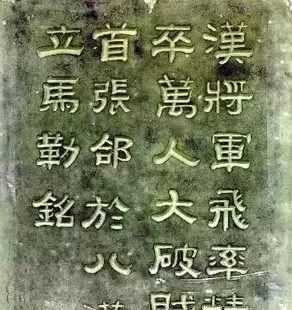 漢將軍飛率精
卒萬人大破賊
首張郃於八
立馬勒銘